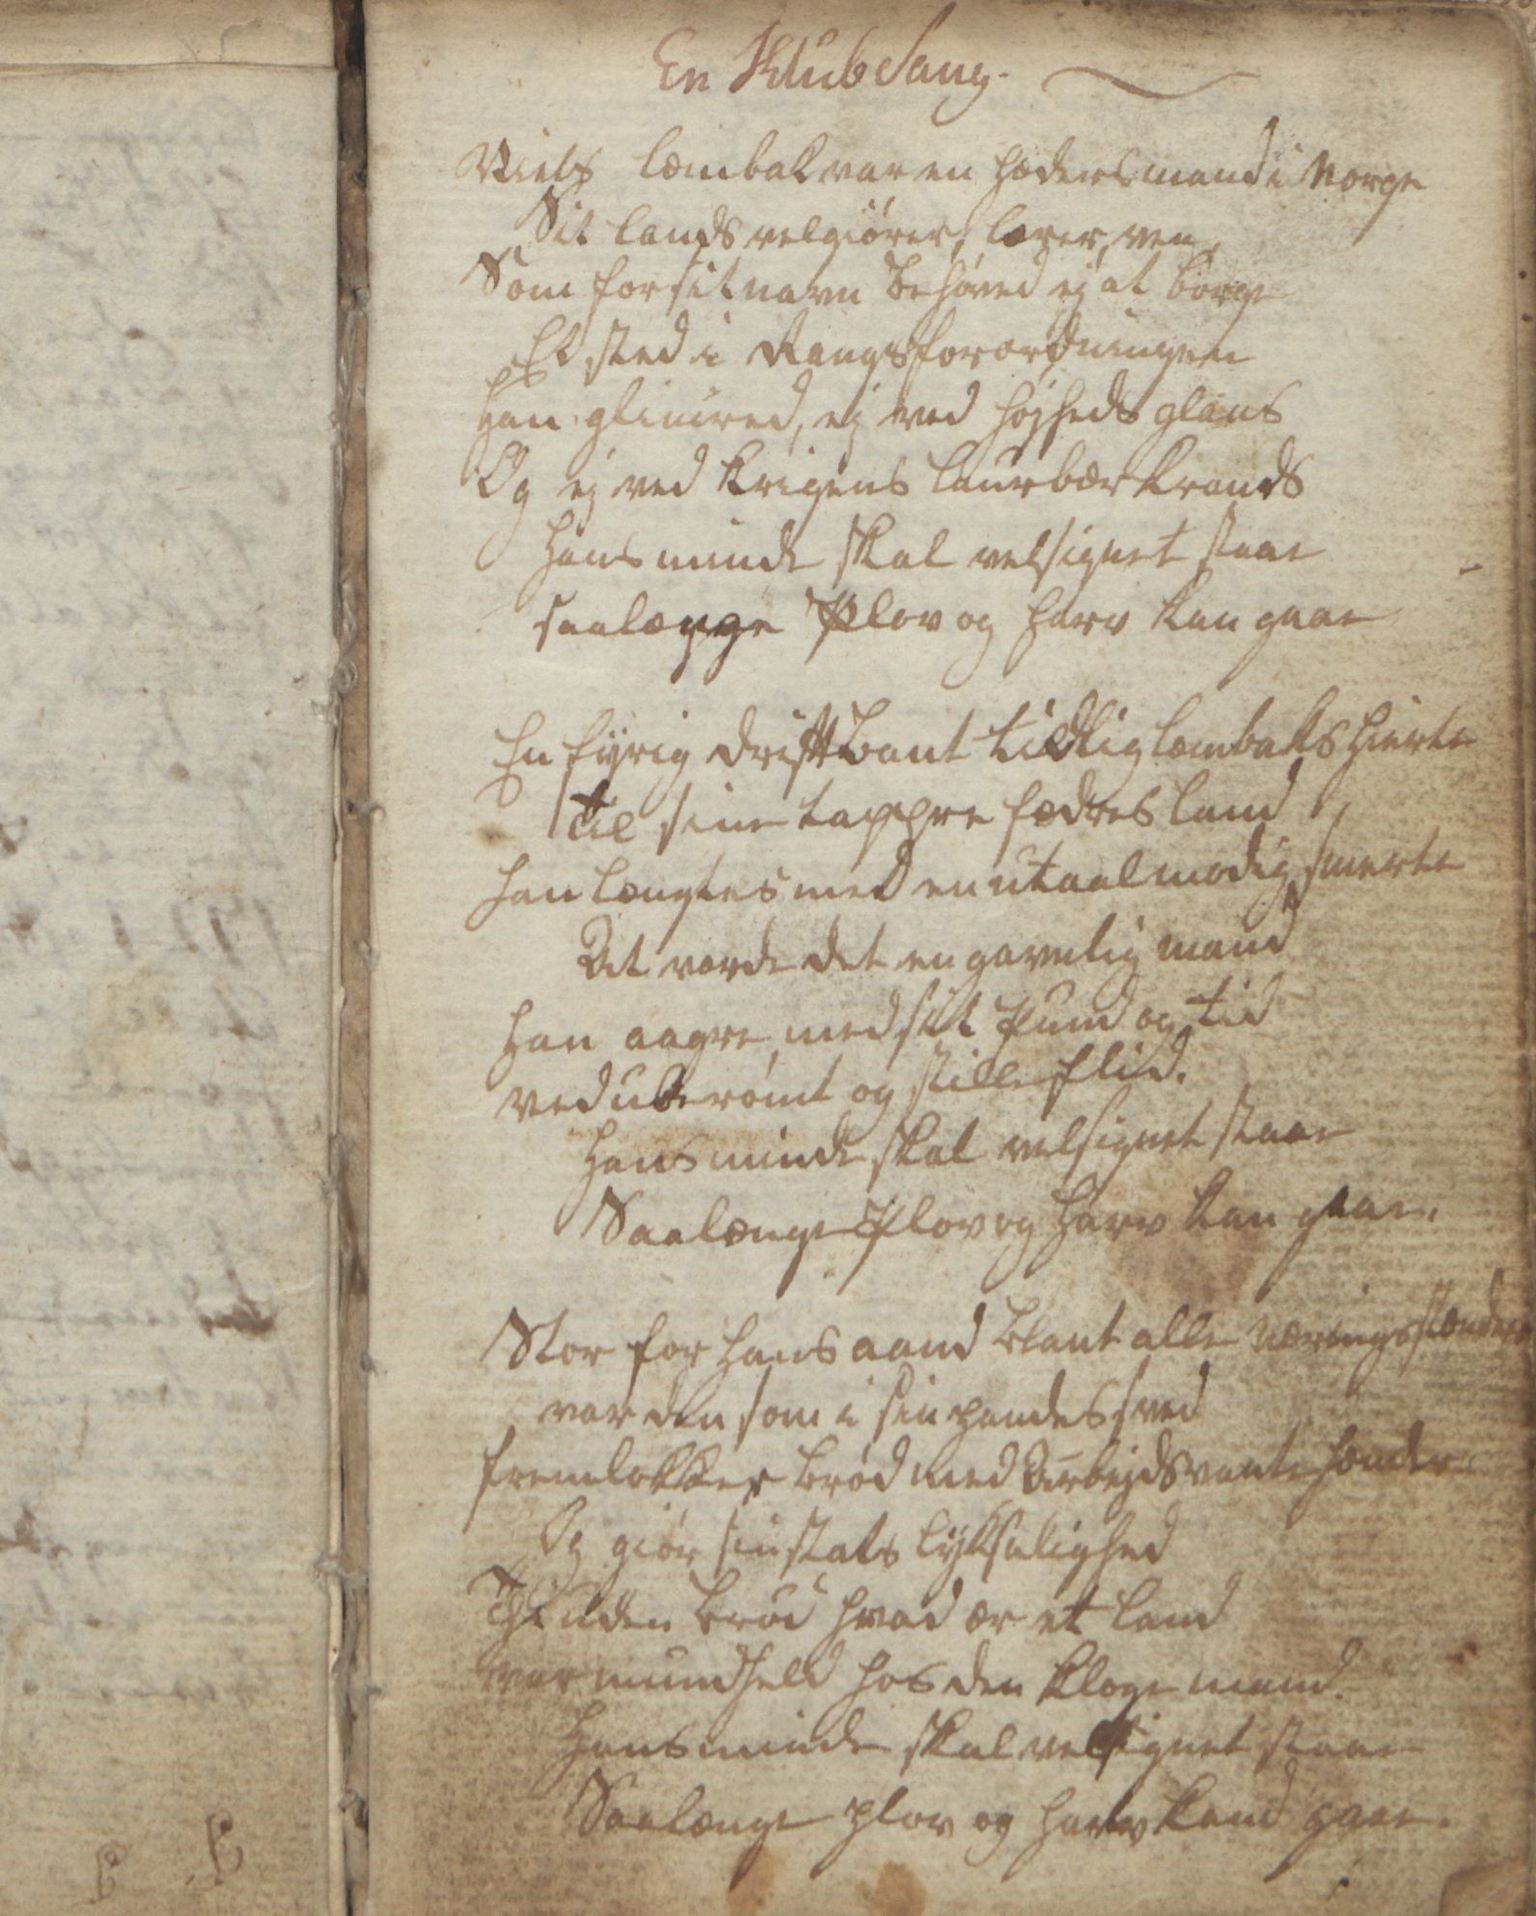 En Klub Sang.
Niels Lœmbak var en hœdersmand i Norge
Sit lands velgiører, lærer, ven,
Som for sit navn behøved ej at borge
Et sted i Rangsforordningen
Han glimred, ej ved højheds glans
Og ej ved krigens laurbær krands
Hans minde skal velsignet staae
saalænge Plov og harv kan gaae
En fyrig drift bant tidlig Lœmbaks hierte
til sine tappre fædres land
han længtes med en utaalmodig smerte
At vorde det en gavnlig mand
Han aagre med sit Pund og tid
ved uberømt og stille flid.
Hans minde skal velsignet staae
Saalænge Plov og Harv kan gaae.
Stor for hans aand blant alle Næringsstænder
var den som i sin pandes sved
fremlokker brød med Arbejdsvante hænder
Og giør sin stats lyksalighed
Thi uden brød hvad er et land
var mundheld hos den kloge mand.
Hans minde skal velsignet staae
Saalænge plov og harv kand gaae.